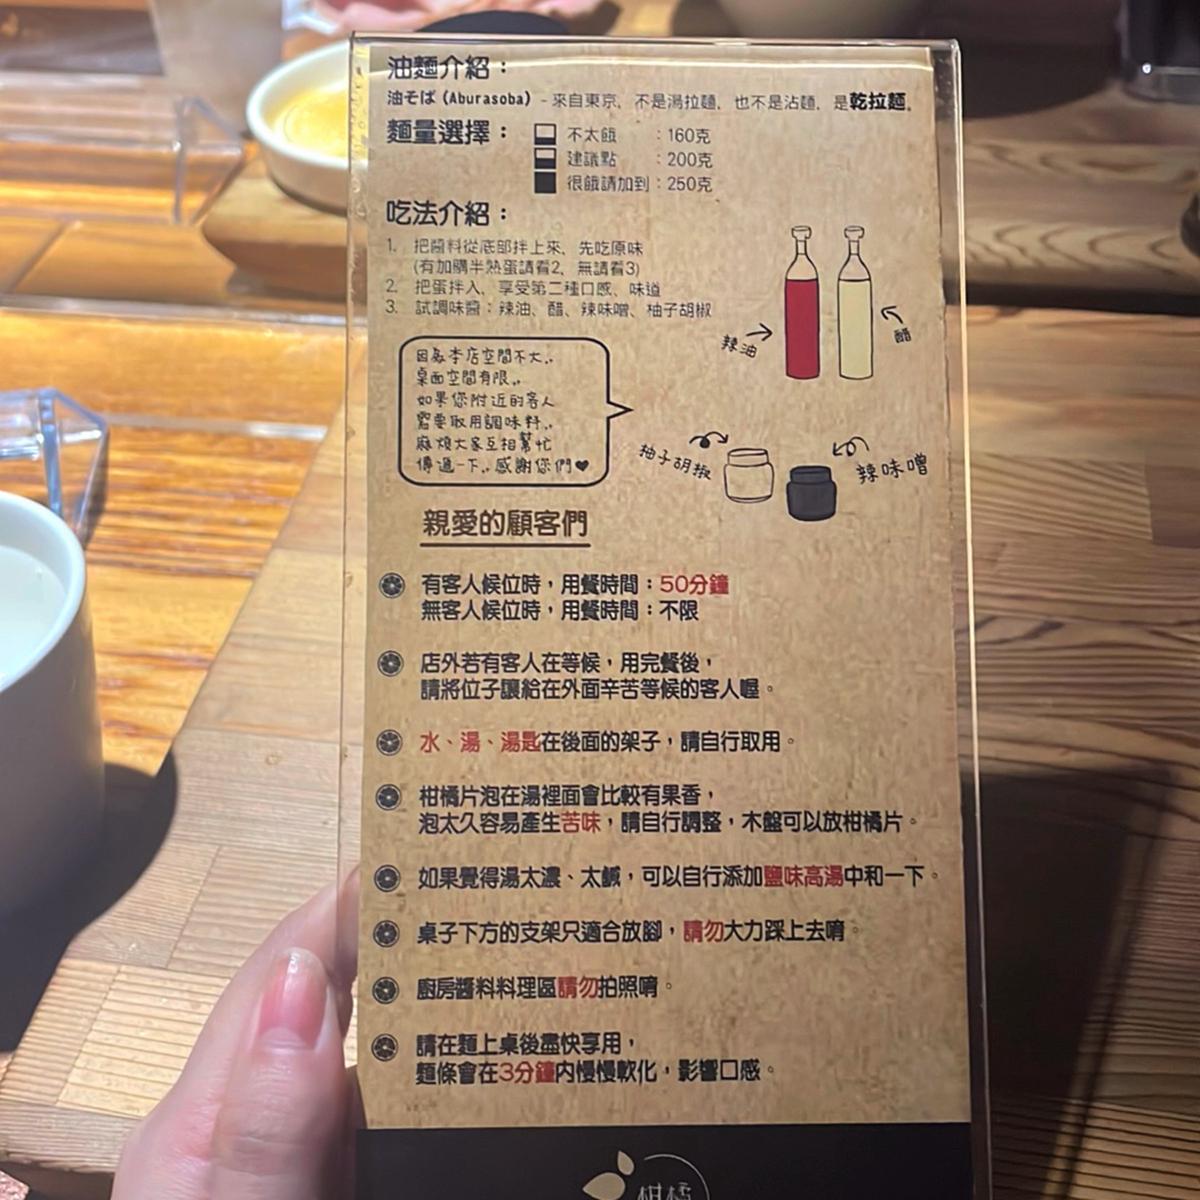 油麵介紹：
油そば (Aburasoba) - 來自東京，不是湯拉麵，也不是沾麵，是乾拉麵。
麵量選擇：
不太餓 ：160克
建議點 ：200克
很餓請加到：250克
吃法介紹：
1. 把醬料從底部拌上來、先吃原味
(有加購半熟蛋請看2、無請看3)
2. 把蛋拌入、享受第二種口感、味道
3. 試調味醬：辣油、醋、辣味噌、柚子胡椒
辣油
醋
因為本店空間不大..
桌面空間有限..
如果您附近的客人
需要取用調味料..
麻煩大家互相幫忙
傳遞一下..感謝您們♥
柚子胡椒
辣味噌
親愛的顧客們
有客人候位時，用餐時間：50分鐘
無客人候位時，用餐時間：不限
店外若有客人在等候，用完餐後，
請將位子讓給在外面辛苦等候的客人喔。
水、湯、湯匙在後面的架子，請自行取用。
柑橘片泡在湯裡面會比較有果香，
泡太久容易產生苦味，請自行調整，木盤可以放柑橘片。
如果覺得湯太濃、太鹹，可以自行添加鹽味高湯中和一下。
桌子下方的支架只適合放腳，請勿大力踩上去唷。
廚房醬料料理區請勿拍照唷。
請在麵上桌後盡快享用，
麵條會在3分鐘內慢慢軟化，影響口感。
柑橘